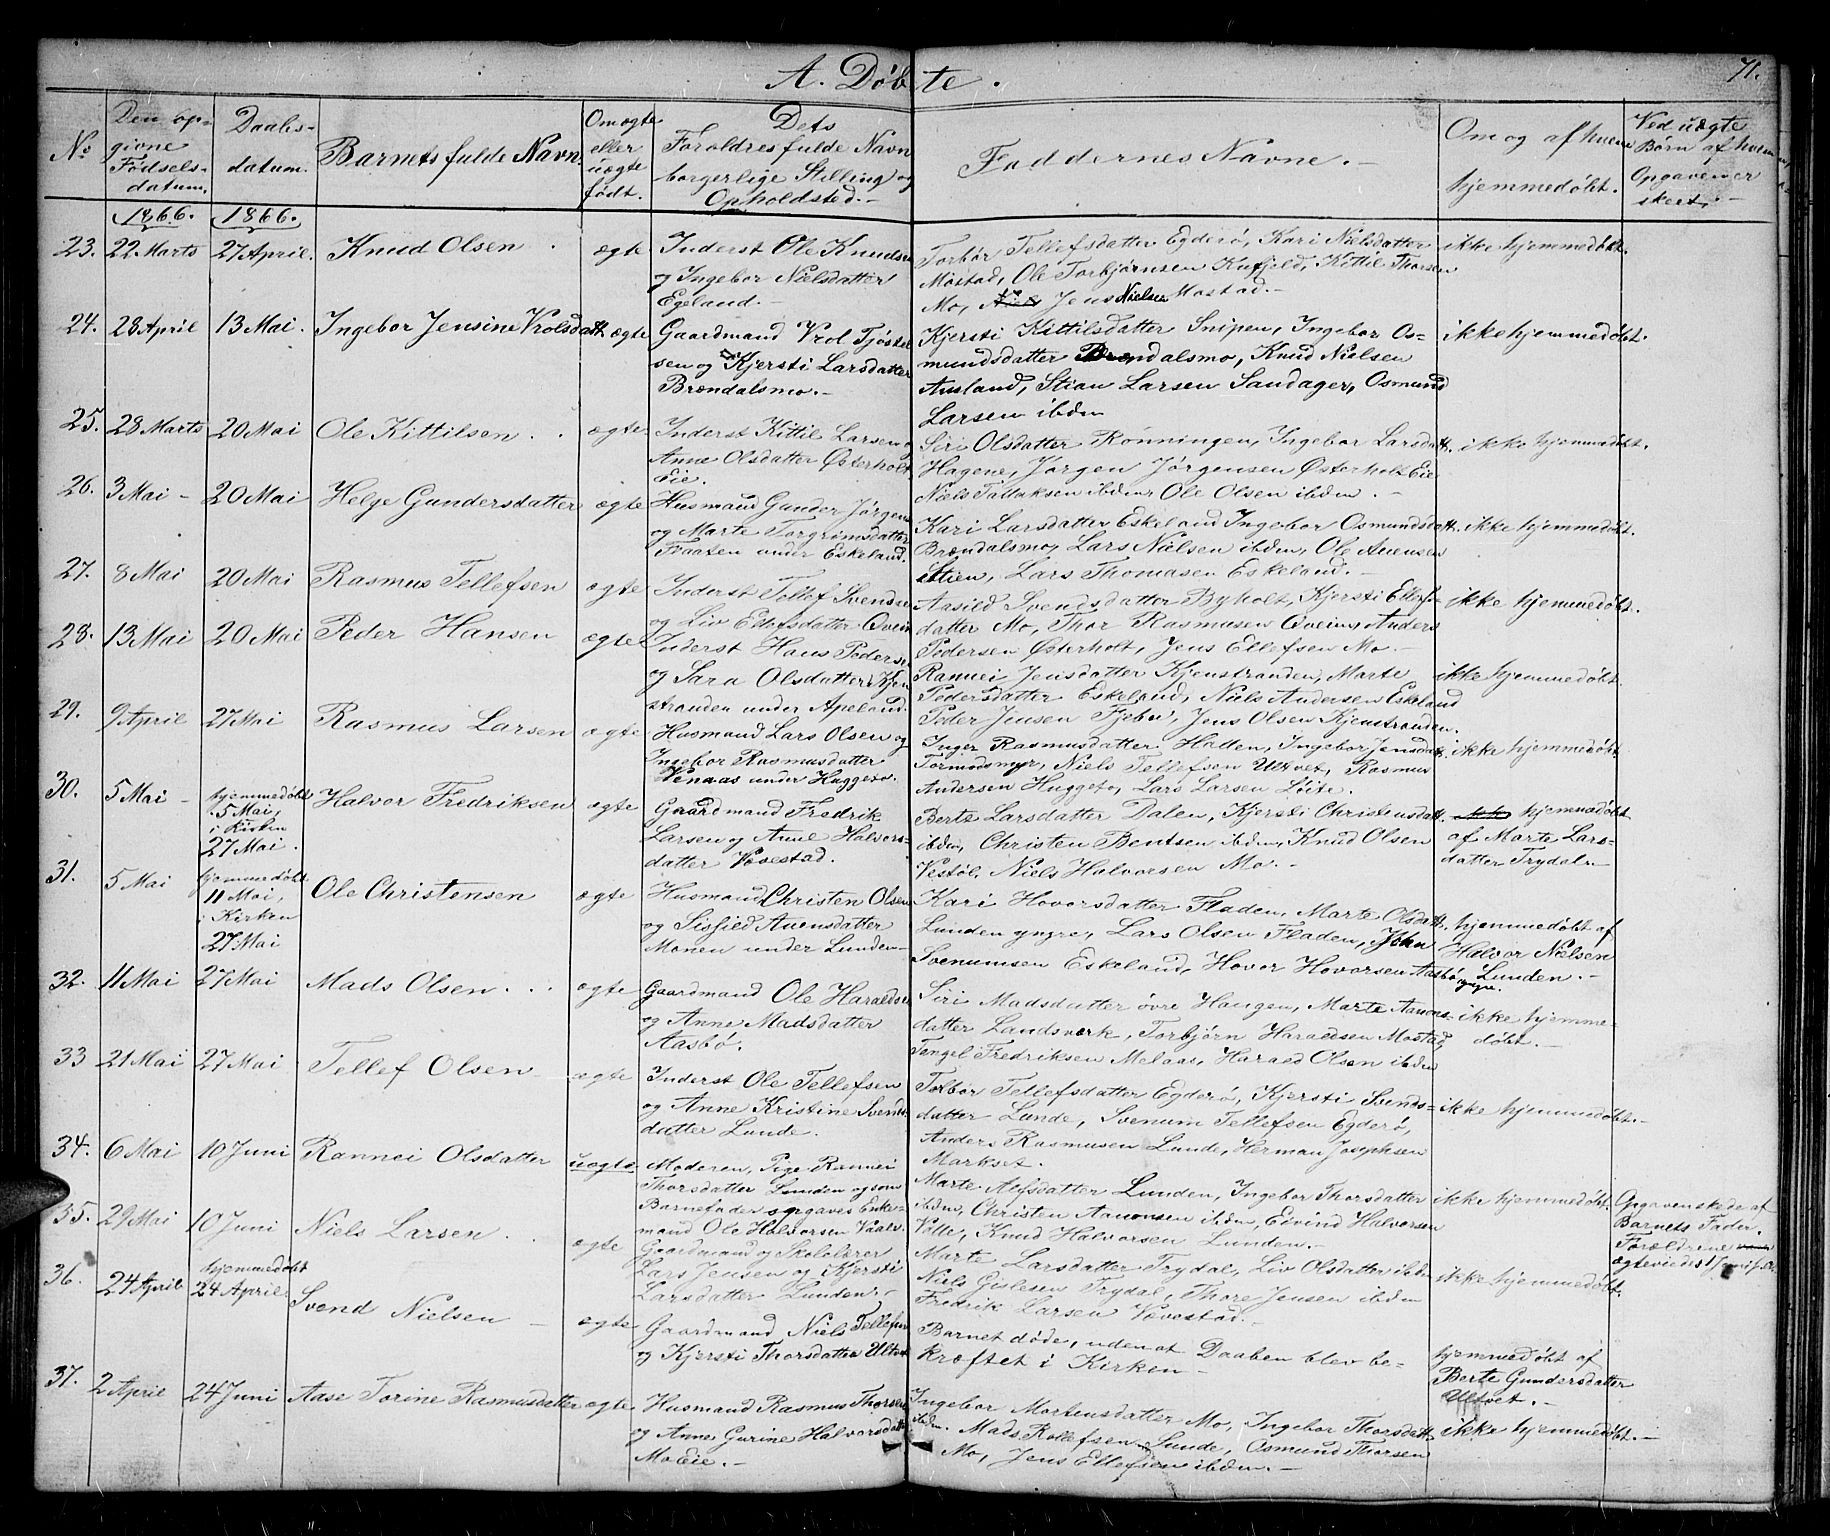 A. Døbte.
71.
No
Den opgivne Fødselsdatum.
Daabsdatum.
Barnets fulde Navn
Om ægte eller uægte født.
Dets Forældres fulde Navn borgerlige Stilling og Opholdsted.-
Faddernes Navne.-
Om og af hvem hjemmedøbt.
Ved uægte Børn af hvem Opgaven er skeet.-
1866.
1866.
23. 22 Marts 27 April. Knud Olsen ægte
Inderst Ole Knudsen
og Ingebor Nielsdatter
Egeland.-
Torbør Tellefsdatter Egderø, Kari Nielsdatter
Mostad, Ole Torbjørnsen Kufjeld, Kittil Thorsen
Mo, Jens Nielsen Mostad.-
ikke hjemmedøbt.
24. 28 April 13 Mai. Ingebor Jensine Vrolsdatt. ægte
Gaardmand Vrol Tjøstel
sen og Kjersti Larsdatter
Brændalsmo.-
Kjersti Kittilsdatter Snipen, Ingebor Os=
mundsdatter Brændalsmo, Knud Nielsen
Ausland, Stian Larsen Sandager, Osmund
Larsen ibden
ikke hjemmedøbt.
25. 28 Marts 20 Mai Ole Kittilsen ægte
Inderst Kittil Larsen og
Anne Olsdatter Østerholt
Eie.
Siri Olsdatter Rønningen, Ingebor Larsdatt.
Hagene, Jørgen Jørgensen Østerholt Eie
Niels Tallaksen ibden, Ole Olsen ibden.-
ikke hjemmedøbt.
26. 3 Mai - 20 Mai Helge Gundersdatter ægte
Husmand Gunder Jørgens
og Marte Torgrimsdatter
Flaaten under Eskeland.
Kari Larsdatter Eskeland Ingebor Osmundsdatt.
Brændalsmo, Lars Nielsen ibden, Ole Auensen
Stien, Lars Thomasen Eskeland.-
ikke hjemmedøbt.
27. 8 Mai 20 Mai Rasmus Tellefsen ægte
Inderst Tellef Svendsen
og Liv Ellefsdatter Qvein
Aasild Svendsdatter Byholt, Kjersti Ellefs-
datter Mo, Thor Rasmusen Qveim, Anders
Pedersen Østerholt, Jens Ellefsen Mo.-
ikke hjemmedøbt.
28. 13 Mai 20 Mai Peder Hansen ægte
Inderst Hans Pederse
og Sara Olsdatter Kjen
stranden under Apeland.
Rannei Jensdatter Kjenstranden, Marte
Pedersdatter Eskeland, Niels Andersen Eskeland
Peder Jensen Fjebu, Jens Olsen Kjenstranden.
ikke hjemmedøbt.
29. 9 April 27 Mai Rasmus Larsen ægte
Husmand Lars Olsen og
Ingebor Rasmusdatter
Venaas under Huggeto.
Inger Rasmusdatter Hatten, Ingebor Jensdatt.
Tormodsmyr, Niels Tellefsen Ultvet, Rasmus
Andersen Huggeto, Lars Larsen Løite.
ikke hjemmedøbt.
30. 5 Mai - hjemmedøbt
5 Mai,
i Kirken
27 Mai.
Halvor Fredriksen ægte
Gaardmand Fredrik
Larsen og Anne Halvors-
datter Vovestad.
Berte Larsdatter Dalen, Kjersti Christensdatt.
ibden, Christen Bentsen ibden, Knud Olsen
Vestøl, Niels Halvorsen Mo.-
ikke hjemmedøbt
af Marte Lars-
datter Trydal.-
31. 5 Mai hjemmedøbt
11 Mai,
i Kirken
27 Mai
Ole Christensen ægte
Husmand Christen Olsen
og Sisfied Auensdatter
Monen under Lunden-
Kari Hovorsdatter Fladen, Marte Olsdatt.
Lunden yngre, Lars Olsen Fladen, John
Svenumsen Eskeland, Hovor Hovorsen Aasbø yngre.
hjemmedøbt af
Halvor Nielsen
Lunden.-
32. 11 Mai 27 Mai Mads Olsen ægte
Gaardmand Ole Haraldse
og Anne Madsdatter
Aasbø.
Siri Madsdatter øvre Haugen, Marte Aanons-
datter Landsverk, Torbjørn Haraldsen Mostad,
Tengel Fredriksen Melaas, Harald Olsen ibden
ikke hjemme-
døbt.-
33 21 Mai 27 Mai Tellef Olsen ægte
Inderst Ole Tellefsen
og Anne Kristine Svends
datter Lunde.
Torbør Tellefsdatter Egderø, Kjersti Svends=
datter Lunde, Svenum Tellefsen Egderø,
Anders Rasmusen Lunde, Herman Josephsen
Markset.
ikke hjemmedøbt.-
34. 6 Mai 10 Juni Rannei Olsdatter uægte
Moderen, Pige Rannei
Thorsdatter Lunden og som
Barnefader opgaves Enke-
mand Ole Halvorsen Vaalv.
Marte Alfsdatter Lunden, Ingebor Thorsdatter
ibden, Christen Aanonsen ibden, Eivind Halvorsen
Ville, Knud Halvorsen Lunden.-
ikke hjemmedøbt.
Opgaven skede af
Barnets Fader.
Forældrene
ægteviedes
35. 29 Mai 10 Juni Niels Larsen ægte
Gaardmand og Skolelærer
Lars Jensen og Kjersti
Larsdatter Lunden.-
Marte Larsdatter Trydal, Liv Olsdatter ibden
Niels Gislesen Trydal, Thore Jensen ibden
Fredrik Larsen Vovestad.-
ikke hjemmedøbt.
36. 24 April hjemmedøbt
24 April
Svend Nielsen - ægte
Gaardmand Niels Tellefsen
og Kjersti Thorsdatter Ultvet
Barnet døde, uden at Daaben blev be-
kræftet i Kirken-
hjemmedøbt af
Berte Gundersdatter
Ultvet.-
37. 2 April 24 Juni Aase Torine Rasmusdatter ægte
Husmand Rasmus Thorsen
og Anne Gurine Halvorsdatt
Mo Eie.-
Ingebor Mortensdatter Mo, Ingebor Thorsdatt.
ibden. Mads Rollefsen Lunde, Osmund Thorsen
Mo, Jens Ellefsen ibden.-
ikke hjemmedøbt.-